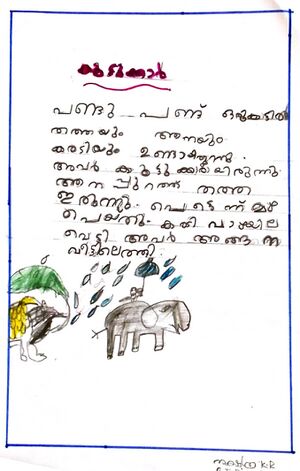 കൂട്ടുക്കാർ
പണ്ടു പണ്ട് ഒരുക്കാട്ടിൽ
തത്തയും ആനയും
കരടിയും ഉണ്ടായിരുന്നു.
അവർ കൂട്ടുക്കാരായിരുന്നു
ആന പ്പുറത്ത് തത്ത
ഇരുന്നു. പെട്ടെന്ന് മഴ
പെയ്തു. കരടി വാഴയില
വെട്ടി അവർ അങ്ങനെ
വീട്ടിലെത്തി.
K.R